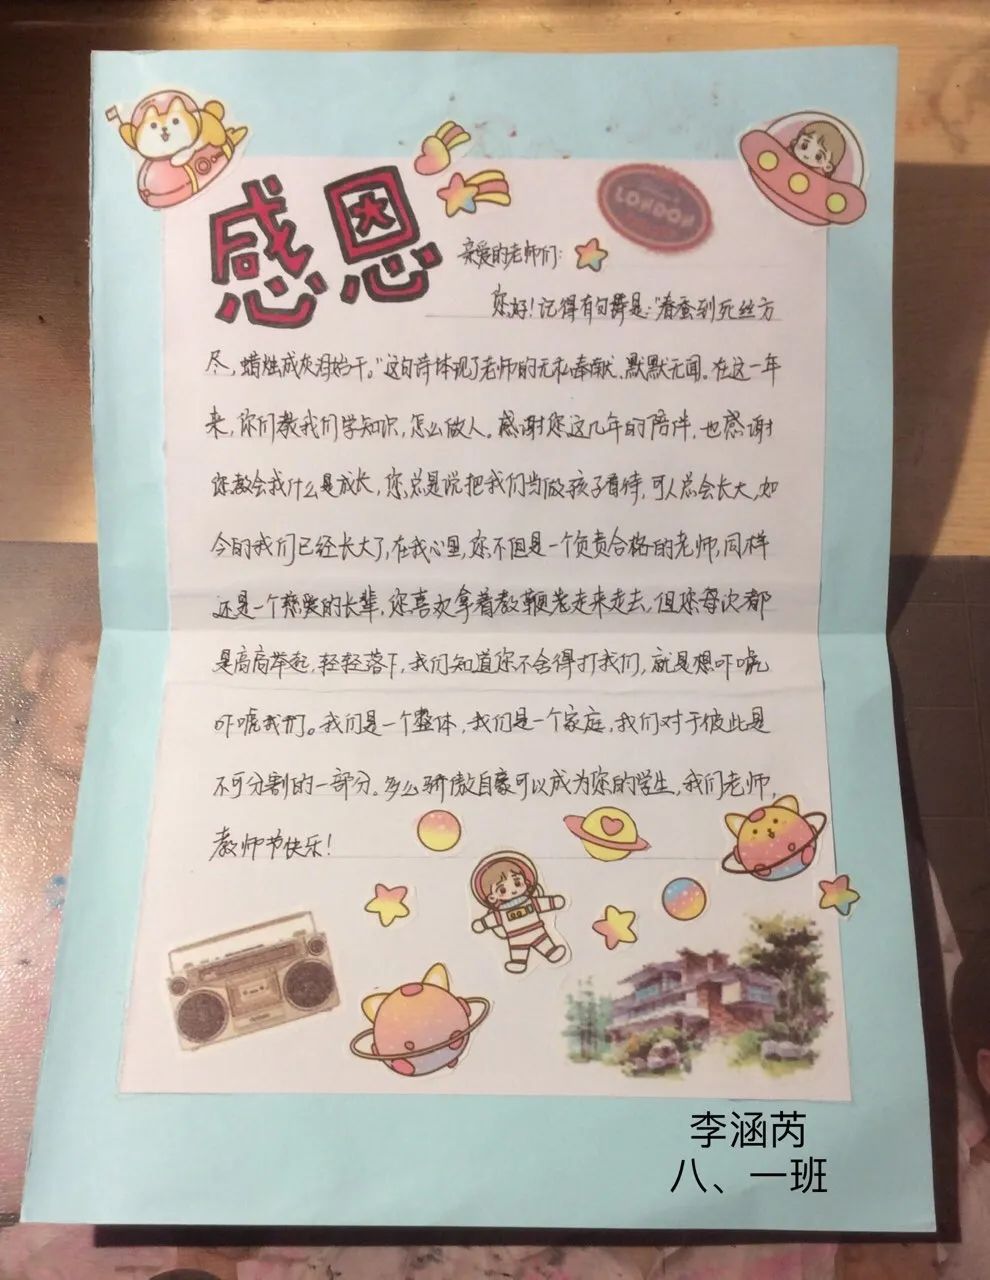 感恩
LONDON
亲爱的老师们：
您好！记得有句诗是：“春蚕到死丝方
尽，蜡炬成灰泪始干。”这句诗体现了老师的无私奉献、默默无闻。在这一年
来，你们教我们学知识，怎么做人。感谢您这几年的陪伴，也感谢
您教会我什么是成长，您总是说把我们当做孩子看待，可人总会长大，如
今的我们已经长大了，在我心里，您不但是一个负责合格的老师，同样
还是一个慈爱的长辈，您喜欢拿着教鞭走来走去，但您每次都
是高高举起，轻轻落下，我们知道您不舍得打我们，就是想吓唬
吓唬我们。我们是一个整体，我们是一个家庭，我们对于彼此是
不可分割的一部分。多么骄傲自豪可以成为您的学生，我们老师，
教师节快乐！
李涵芮
八、一班